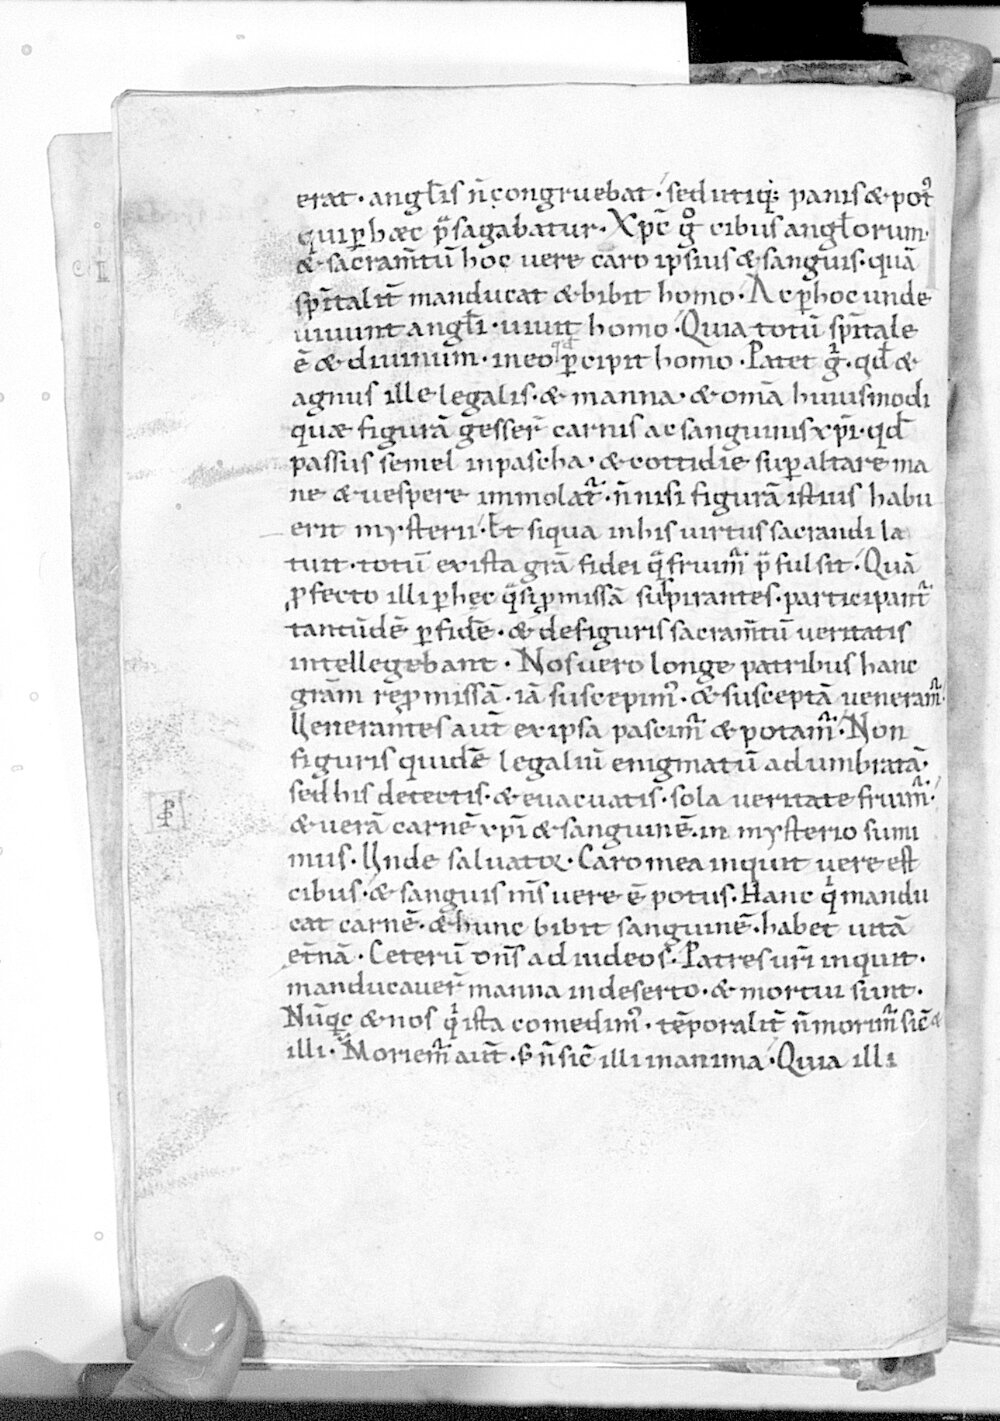 erat · angłis n̄ congruebat · sed utiq; panis & pot᷒
qui ꝑ hæc p̄sagabatur · Xp̄c g̊ cibus angłorum ·
& sacram̄tū hoc uere caro ipsius & sanguis · quā
sp̄italit̄ manducat & bibit homo · Ac ꝑ hoc unde
uiuunt angłi · uiuit homo · Quia totū sp̄itale
ē & diuinum · in eo qđ ꝑcipit homo · Patet gͥ · qđ &
agnus ille legalis · & manna · & om̄a huiusmodi
quæ figurā gesser̄ carnis ac sanguinis xp̄i · qđ
passus semel in pascha · & cottidie sup altare ma
ne & uespere immolat᷑ · n̄ nisi figurā istius habu
erit mysterii · Et siqua in his uirtus sacrandi la
tuit · totū ex ista grā fidei q̄ fruim᷑ p̄fulsit · Quā
ꝓfecto illi ꝑ hęc q̄si ꝓmissā suspirantes · participant᷑
tantūdē ꝑ fidē · & de figuris sacram̄tū ueritatis
intellegebant · Nos uero longe patribus hanc
grām reꝓmissā · iā suscepim᷒ · & susceptā ueneram᷑ ·
Uenerantes aut̄ ex ipsa pascim᷑ & potam᷑ · Non
figuris quidē legaliū enigmatū adumbratā ·
sed his detectis · & euacuatis · sola ueritate fruim᷑ ·
& uerā carnē xp̄i & sanguinē · in mysterio sumi
mus · Unde saluator · Caro mea inquit uere est
cibus · & sanguis m̄s uere ē potus · Hanc qͥ mandu
cat carnē · & hunc bibit sanguinē · habet uitā
et̄nā · Ceterū dn̄s ad iudeos · Patres ur̄i inquit ·
manducauer̄ manna in deserto · & mortui sunt ·
Nūqͥc & nos qͥ ista comedim᷒ · tēporalit̄ n̄ morim᷑ sic̄ &
illi · Moriem᷑ aut̄ · s; n̄ sic̄ illi in anima · Quia illi